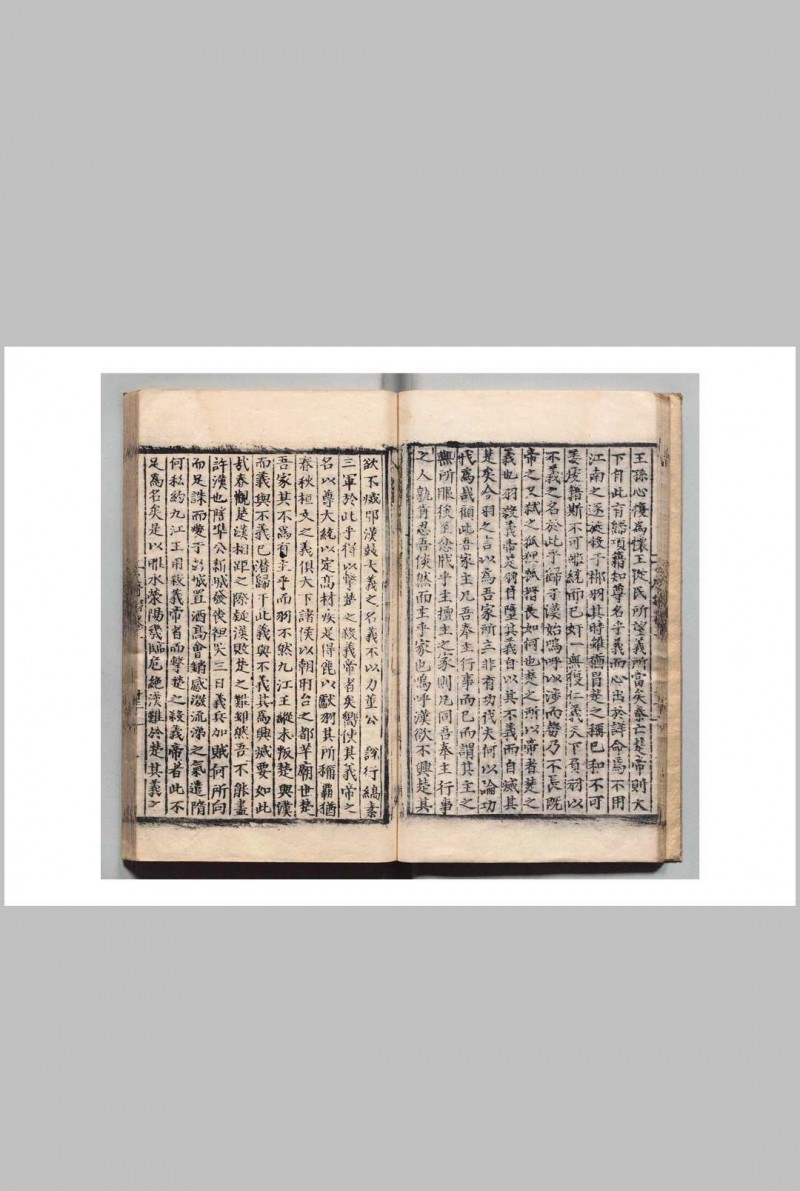 王孫心復爲懷王從民所望義所當矣秦亡楚帝則大
下自此有歸項籍知尊名乎義而心出於詳命焉不用
江南之逐掀殺于郴羽其時雖猶冒楚之稱已和不可
籍斯不可繼統而已奸一與復仁義天下負羽以
不義之名於此乎歸于漢始嗚呼以涉而嘗乃不長既
帝之又弑之狐狸狐搰長如何也楚之所以帝者楚之
義也羽殺義帝是羽自墮其義自以其不義而自滅其
楚矣今羽之言以爲吾家所立非有功伐夫何以論功
伐爲哉顧此吾家主凡吾奉主行事而已而謂其主之
無所眼後至愆戕乎主擅主之家則凡同吾奉主行事
之人孰肯忍吾倐然而主乎家也嗚呼漢欲不興楚其
欲不滅耶漢兢大義之名義不以力董公 說行縞素
三軍於此乎得以擊楚之殺義帝者矣嚮使其義帝之
名以尊大統以定高材疾足得能以獻羽其所稱霸猶
春秋桓文之義俱天下諸侯以朝盱台之都羊廟世楚
吾家其不爲有主乎而羽不然九江王縱未叛楚興漢
而義與不義已潛歸于此義與不義其爲興滅要如此
哉春觀楚漢相距之際錠漢敗楚之難却然吾不能盡
許漢也陰準公新城發喪袒哭三日義兵加賊何所向
而足誅而奭于彭城置酒高會銷感淑流涕之氣遣隋
何私約九江王用殺義帝者而擊楚之殺義帝者此不
足爲名矣是以睢水滎陽幾臨危絶漢難於楚其義之